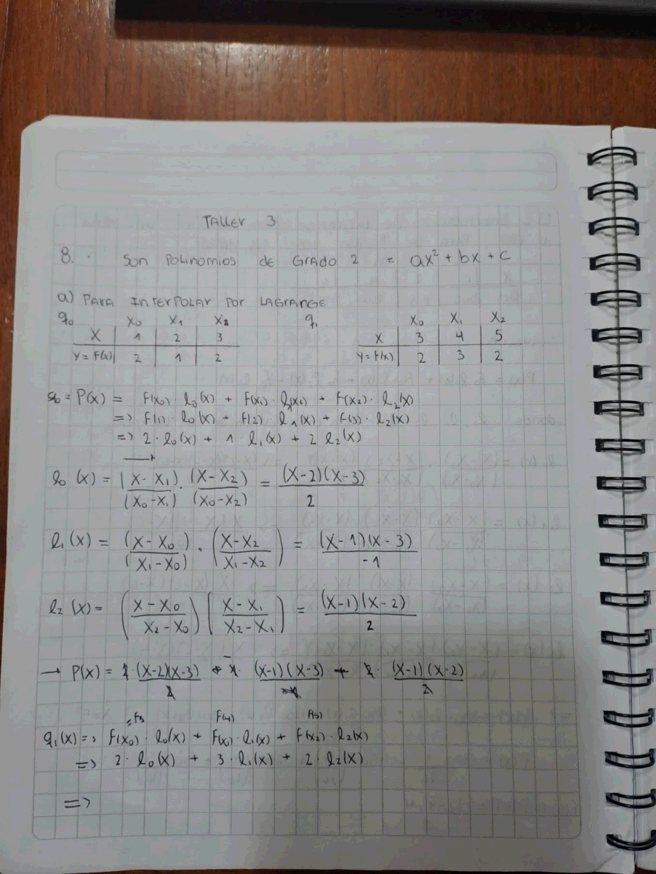 TALLER 3
8. Son Polinomios de Grado 2 = ax² + bx + c
a) PARA INTERPOLAR POR LAGRANGE
q₀ X₀ X₁ X₂ q₁ X₀ X₁ X₂
X 1 2 3 X 3 4 5
Y=F(x) 2 1 2 Y=F(x) 2 3 2
q₀ = P(x) = F(x₀) · l₀(x) + F(x₁) · l₁(x) + F(x₂) · l₂(x)
=> F(1) · l₀(x) + F(2) · l₁(x) + F(3) · l₂(x)
=> 2 · l₀(x) + 1 · l₁(x) + 2 l₂(x)
l₀(x) = (X-X₁)/(X₀-X₁) · (X-X₂)/(X₀-X₂) = (X-2)(X-3)/2
l₁(x) = (X-X₀)/(X₁-X₀) · (X-X₂)/(X₁-X₂) = (X-1)(X-3)/-1
l₂(x) = (X-X₀)/(X₂-X₀) (X-X₁)/(X₂-X₁) = (X-1)(X-2)/2
→ P(x) = 2 (X-2)(X-3)/2 - 1 · (X-1)(X-3)/-1 + 2 · (X-1)(X-2)/2
F(3) F(4) F(5)
q₁(x) => F(x₀) · l₀(x) + F(x₁) · l₁(x) + F(x₂) · l₂(x)
=> 2 · l₀(x) + 3 · l₁(x) + 2 · l₂(x)
=>